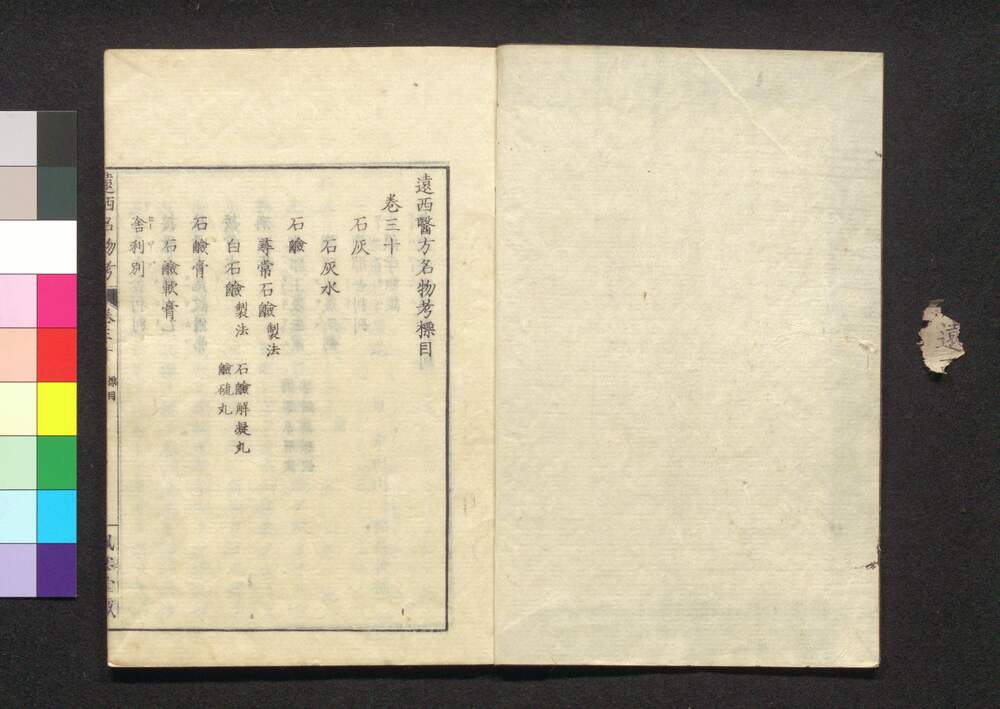 遠西醫方名物考標目
卷三十
石灰
石灰水
石鹼
尋常石鹼製法
白石鹼製法 石鹼解凝丸
鹼硫丸
石鹼膏
石鹼軟膏
舎利別
遠西名物考
標目
遠